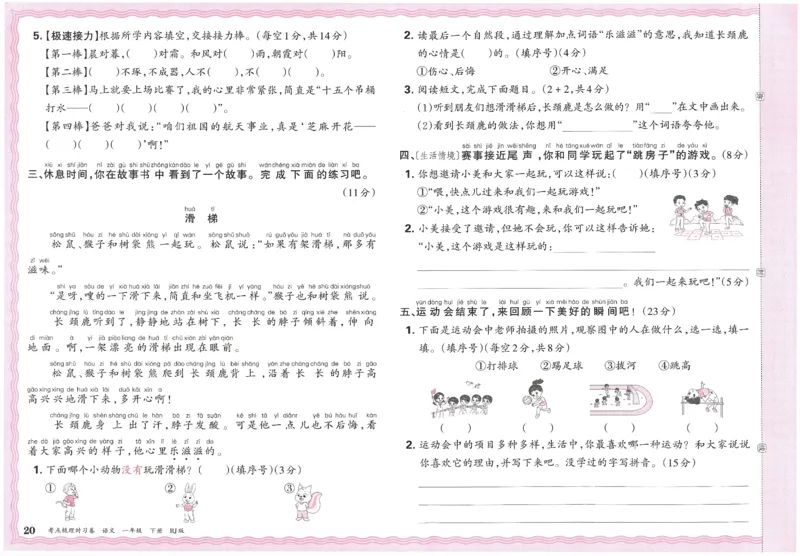 5.【极速接力】根据所学内容填空,交接接力棒。(每空1分,共14分)
【第一棒】晨对暮,( )对霜。和风对( )雨,朝霞对( )阳。
【第二棒】( )不琢,不成器,人不( ),不( )( )。
【第三棒】马上就要上场比赛了,我的心里非常紧张,简直是“十五个吊桶
打水——( )( )( )( )”。
【第四棒】爸爸对我说:“咱们祖国的航天事业,真是‘芝麻开花——
( )( )( )’啊!”
xiū xi shí jiān nǐ zài gù shi shū zhōng kàn dào le yí gè gù shi wán chéng xià miàn de liàn xí ba
三、休息时间,你在故事书中看到了一个故事。完成下面的练习吧。
(11分)
huá tī
滑 梯
sōng shǔ hóu zi hé shù dài xióng yì qǐ wán sōng shǔ shuō rú guǒ yǒu jià huá tī nà duō yǒu
松鼠、猴子和树袋熊一起玩。松鼠说:“如果有架滑梯,那多有
zī wèi
滋味。”
shì ya sōu de yí xià huá xià lái jiǎn zhí hé zuò fēi jī yí yàng hóu zi hé shù dài xióng shuō
“是呀,嗖的一下滑下来,简直和坐飞机一样。”猴子也和树袋熊说。
cháng jǐng lù tīng dào le jìng jìng de zhàn zài shù xià cháng cháng de bó zi qīng xié zhe shēn xiàng
长颈鹿听到了,静静地站在树下,长长的脖子倾斜着,伸向
dì miàn à yí jià piào liang de huá tī chū xiàn zài yǎn qián
地面。啊,一架漂亮的滑梯出现在眼前。
sōng shǔ hóu zi hé shù dài xióng pá dào cháng jǐng lù bèi shang yán zhe cháng cháng de bó zi gāo
松鼠、猴子和树袋熊爬到长颈鹿背上,沿着长长的脖子高
gāo xìng xìng de huá xià lái duō kāi xīn a
高兴兴地滑下来,多开心啊!
cháng jǐng lù shēn shàng chū le hàn bó zi fā suān kě shì tā yì diǎnr yě bú hòu huǐ kàn
长颈鹿身上出了汗,脖子发酸。可是他一点儿也不后悔,看
zhe dà jiā gāo xìng de yàng zi tā xīn lǐ lè zī zī de
着大家高兴的样子,他心里乐滋滋的。
1.下面哪个小动物没有玩滑滑梯?( )(填序号)(3分)
① ② ③
20 考点梳理时习卷 语文 一年级 下册 RJ版
2.读最后一个自然段,通过理解加点词语“乐滋滋”的意思,我知道长颈鹿
的心情是( )的。(填序号)(4分)
①伤心、后悔 ②开心、满足
3.阅读短文,完成下面题目。(2+2,共4分)
(1)听到朋友们想滑滑梯后,长颈鹿是怎么做的?用“____”在文中画出来。
(2)看到长颈鹿的做法,你想用“____________”这个词语夸夸他。
sài shì jiē jìn wěi shēng nǐ hé tóng xué wán qǐ le tiào fáng zi de yóu xì
四、〔生活情境〕赛事接近尾声,你和同学玩起了“跳房子”的游戏。(8分)
1.你想邀请小美和大家一起玩,可以这样说:( )(填序号)(3分)
①“喂,快点儿过来和我们一起玩游戏!”
②“小美,这个游戏很有趣,来和我们一起玩吧!”
2.小美接受了邀请,但她不会玩,你可以这样告诉她:
“小美,这个游戏是这样玩的:____________
____________
____________。我们一起来玩吧!”(5分)
yùn dòng huì jié shù le lái huí gù yí xià měi hǎo de shùn jiān ba
五、运动会结束了,来回顾一下美好的瞬间吧!(23分)
1.下面是运动会中老师拍摄的照片,观察图中的人在做什么,选一选,填一
填。(填序号)(每空2分,共8分)
①打排球 ②踢足球 ③拔河 ④跳高
( ) ( ) ( ) ( )
2.运动会中的项目多种多样,生活中,你最喜欢哪一种运动?和大家说说
你喜欢它的理由,并写下来吧。没学过的字写拼音。(15分)